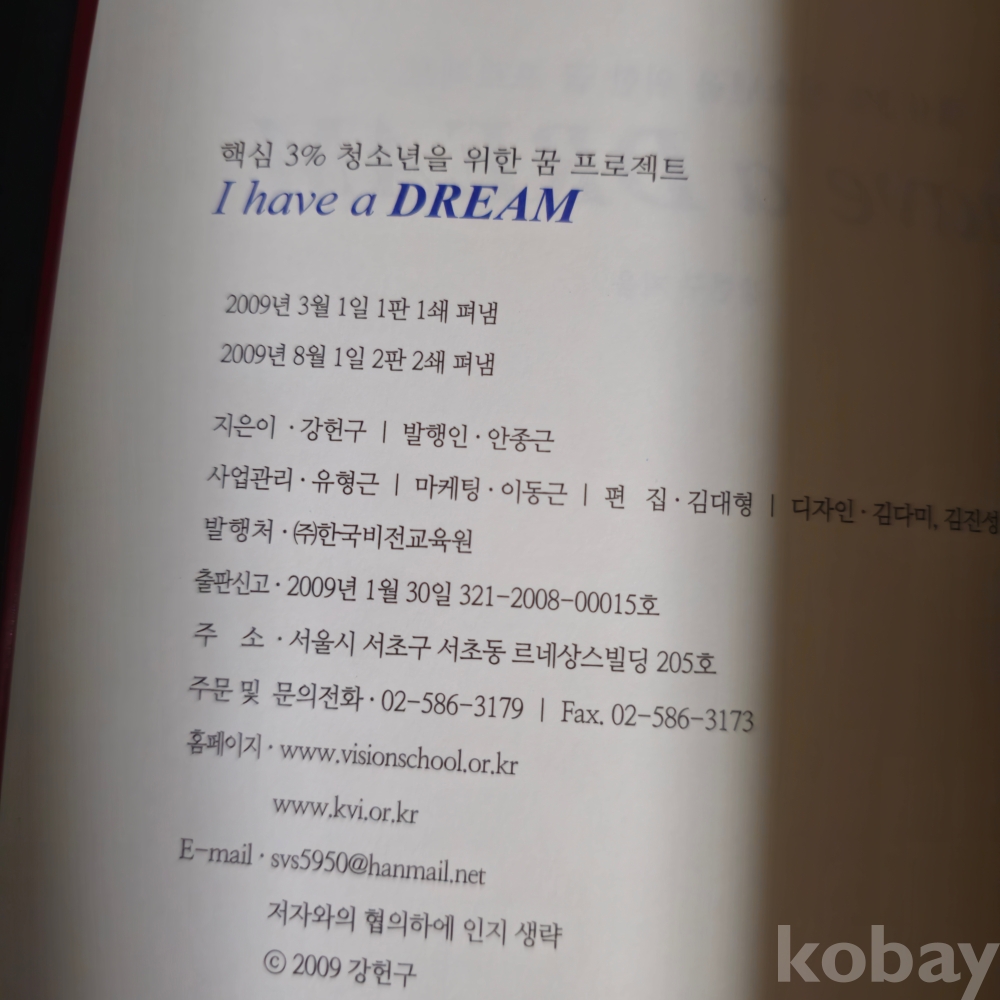 핵심 3% 청소년을 위한 꿈 프로젝트
I have a DREAM
2009년 3월 1일 1판 1쇄 펴냄
2009년 8월 1일 2판 2쇄 펴냄
지은이 · 강헌구 | 발행인 · 안종근
사업관리 · 유형근 | 마케팅 · 이동근 | 편 집 · 김대형 | 디자인 · 김다미, 김진성
발행처 · ㈜한국비전교육원
출판신고 · 2009년 1월 30일 321-2008-00015호
주 소 · 서울시 서초구 서초동 르네상스빌딩 205호
주문 및 문의전화 · 02-586-3179 | Fax. 02-586-3173
홈페이지 · www.visionschool.or.kr
www.kvi.or.kr
E-mail · svs5950@hanmail.net
저자와의 협의하에 인지 생략
© 2009 강헌구
kobay